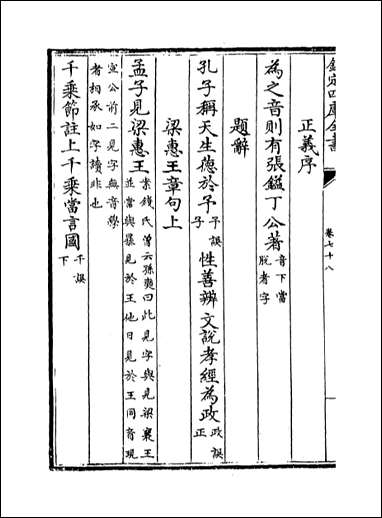 欽定四庫全書
卷七十八
正義序
為之音則有張鎰丁公著音下當脫者字
題辭
孔子稱天生德於予予誤子性善辨文說孝經為政政誤正
梁惠王章句上
孟子見梁惠王案錢氏曾云孫奭曰此見字與見梁襄王並當與暴見於王他日見於王同音現
宣公前二見字無音學者相承如字讀非也
千乘節註上千乘當言國千誤下